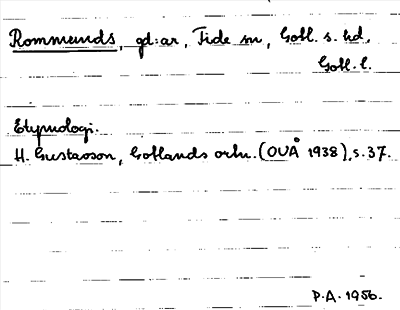 Rommunds, gd:ar, Fide sn, Gotl. s. hd,
Gotl. l.
Etymologi.
H. Gustavson, Gotlands ortn. (OUÅ 1938), s. 37.
P.A. 1956.